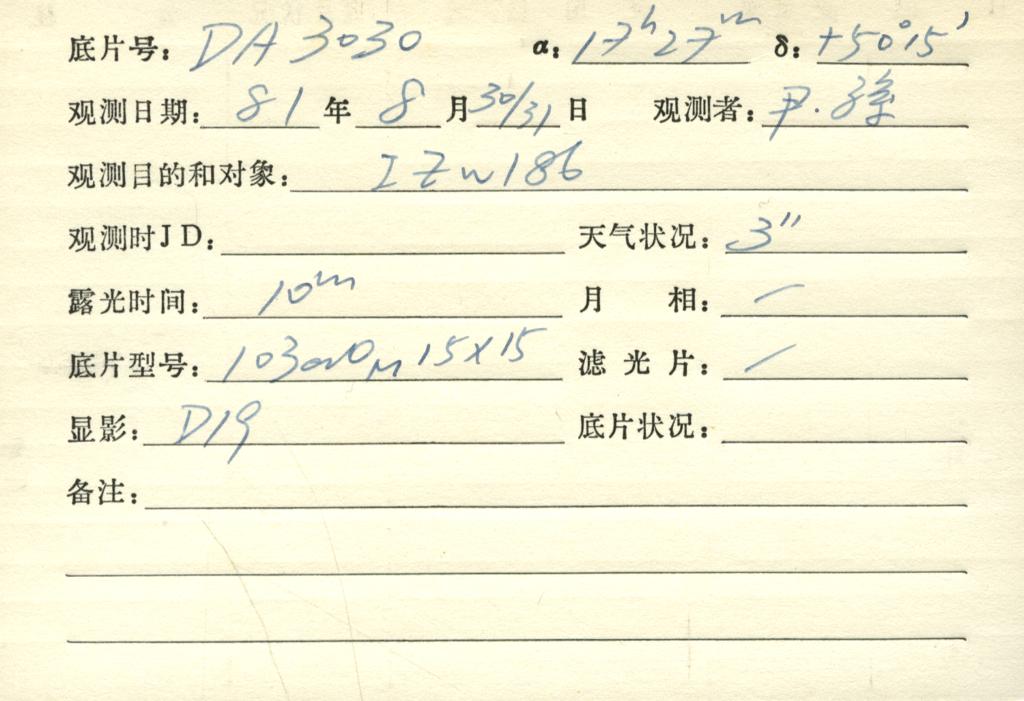 底片号: DA 3030 α: 17ʰ27ᵐ δ: +50°15′
观测日期: 81 年 8 月 30/31 日 观测者: 尹·孫
观测目的和对象: I Zw 186
观测时JD: 天气状况: 3″
露光时间: 10ᵐ 月 相: /
底片型号: 103aO 15×15 滤光片: /
显影: D19 底片状况:
备注: